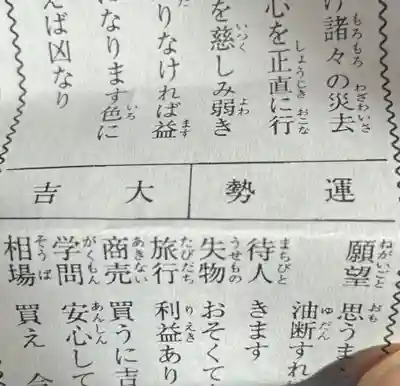 諸々の災去
心を正直に行
を慈しみ弱き
りなければ益
なります色に
えば凶なり
運勢 大吉
願望 思うま
油断すれ
待人 きます
失物 おそくて
旅行 利益あり
商売 買うに吉
学問 安心して
相場 買え